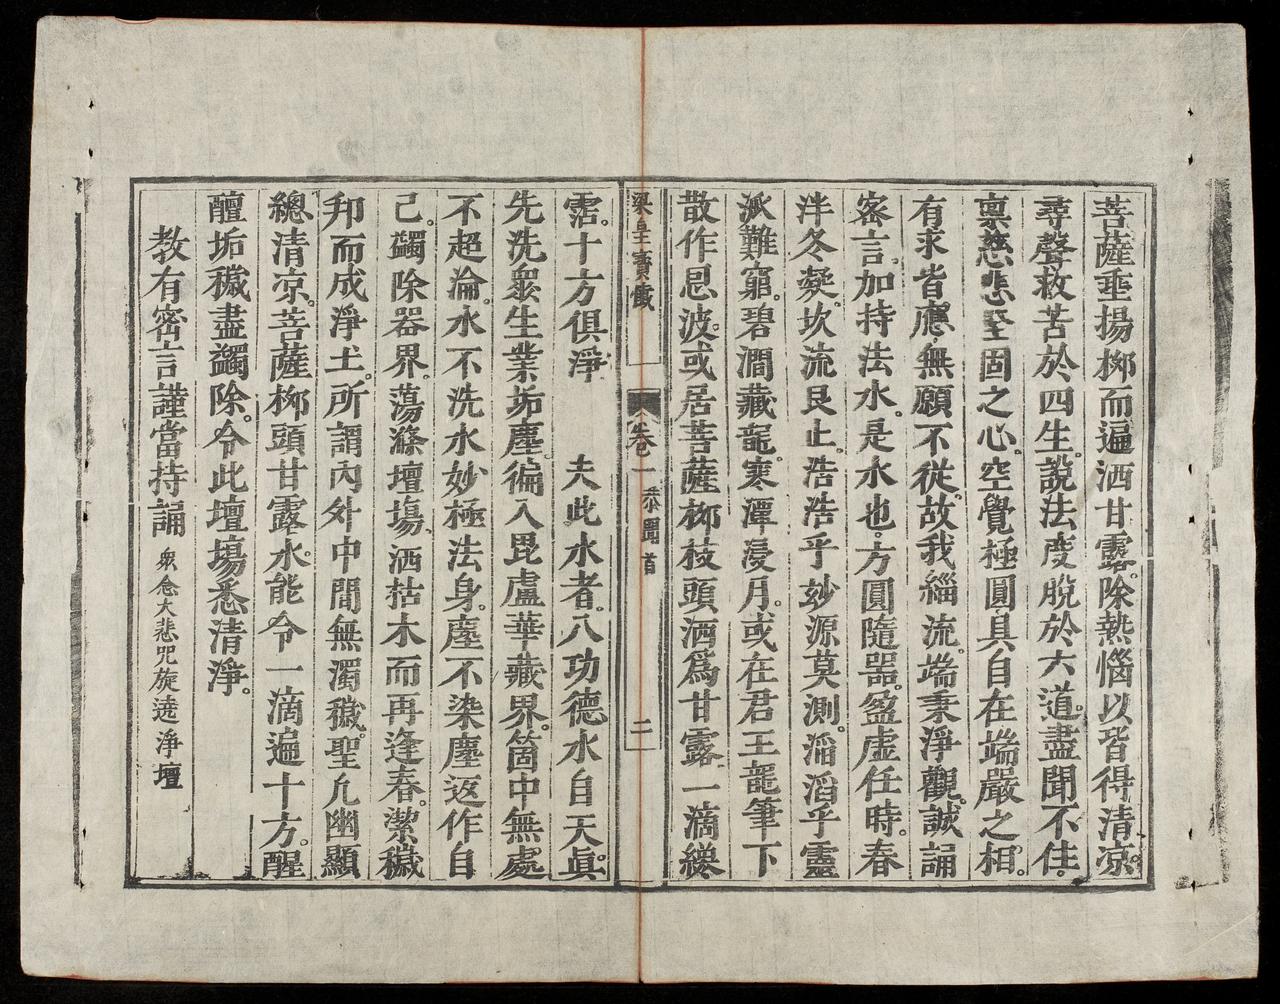 菩薩垂揚柳而遍洒甘露。除熱惱以皆得清凉。
尋聲救苦於四生。說法度脫於六道。盡聞不住。
禀慈悲堅固之心。空覺極圓具自在端嚴之相。
有求皆應。無願不從。故我緇流。端秉淨觀。誠誦
密言。加持法水。是水也。方圓隨器。盈虛任時。春
泮冬凝。坎流艮止。浩浩乎妙源莫測。滔滔乎靈
派難窮。碧澗藏龍。寒潭浸月。或在君王龍筆下
散作恩波。或居菩薩柳枝頭洒爲甘露一滴纔
梁皇寶懺 卷一 恭聞首 二
霑。十方俱淨 夫此水者。八功德水自天眞。
先洗衆生業垢塵。徧入毘盧華藏界。箇中無處
不超淪。水不洗水妙極法身。塵不染塵返作自
己。蠲除器界。蕩滌壇塲。洒枯木而再逢春。潔穢
邦而成淨土。所謂內外中間無濁穢。聖凡幽顯
總清凉。菩薩柳頭甘露水。能令一滴遍十方。腥
膻垢穢盡蠲除。令此壇塲悉清淨。
教有密言謹當持誦 衆念大悲咒旋遶淨壇